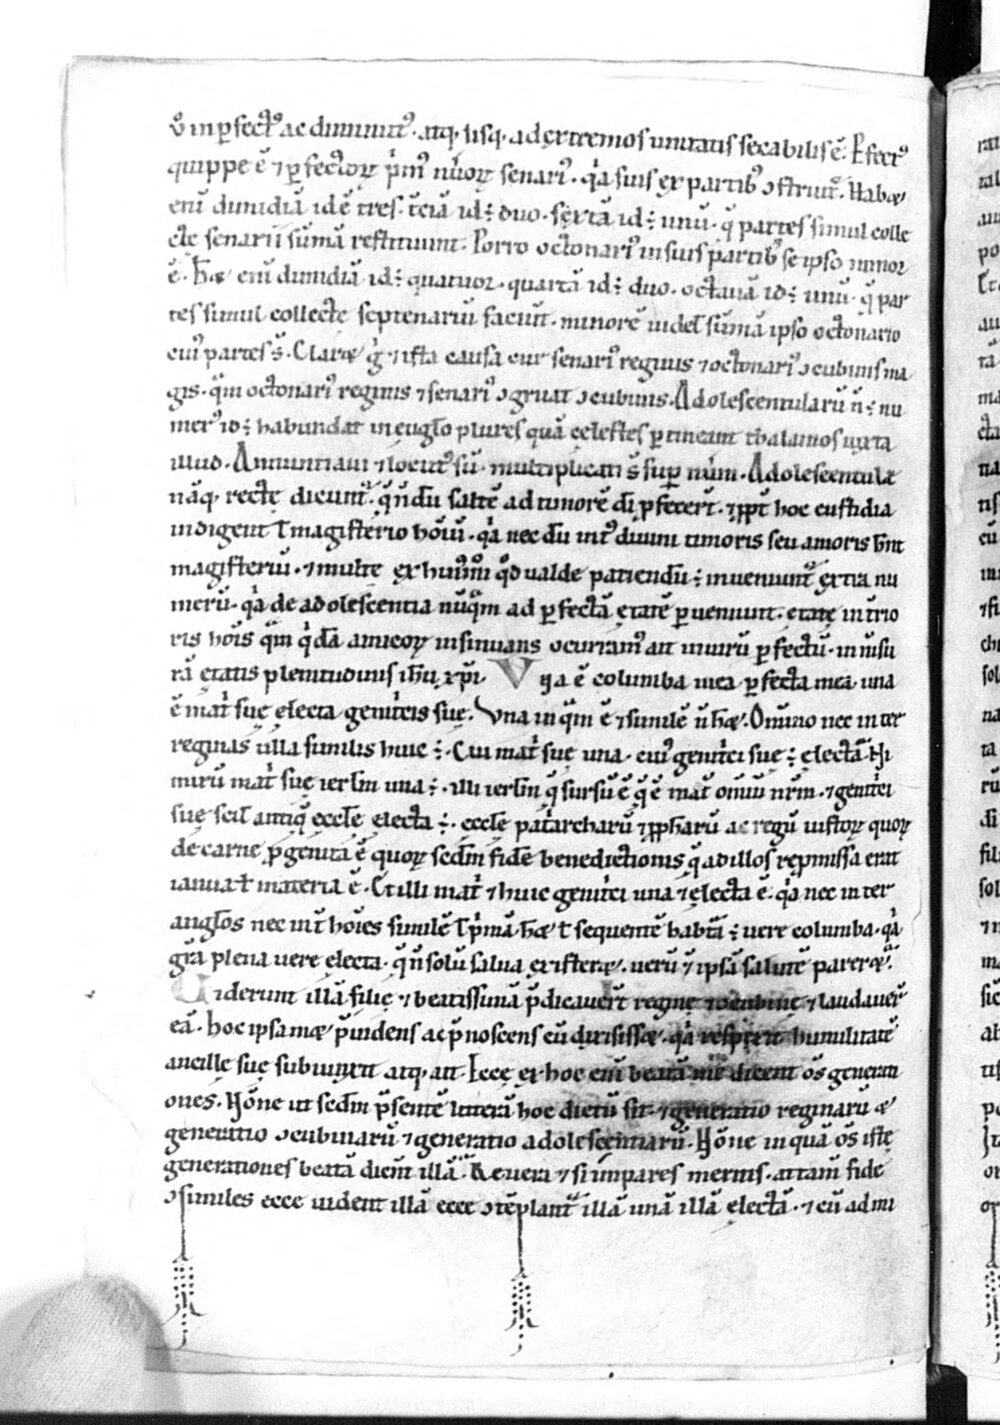 ů inꝑfectꝰ ac diminutꝰ. atq; usq; ad extremos unitatis secabilis ē. Pfectꝰ
quippe ē ⁊ ꝑfectoꝝ p̓mꝰ nũoꝝ senariꝰ. q̓a suis ex partibꝰ ↄstruit᷑. Habet
eni dimidiū id ē tres. t̄ciā id ē duo. sextā id ē unū. q̄ partes simul colle
cte senarii sūmā restituunt. Porro octonariꝰ in suis partibꝰ se ipso minor
ē. H̄et enī dimidiū id ē quatuor. quartā id ē duo. octauā id ē unū. q̄ par
tes simul collecte septenariū faciūt. minorē uidel; sūmā ipso octonario
cuiꝰ partes s̄. Claret g̓ ⁊ ista causa cur senariꝰ reginis ⁊ octonariꝰ ↄcubinis ma
gis. q̄m octonariꝰ reginis ⁊ senariꝰ ↄgruat ↄcubinis. Adolescentularū ñ ē nu
merꝰ id ē habundat in euglo plures quā celestes ꝑtineant thalamos iuxta
illud. Annuntiaui ⁊ locutꝰ sū. multiplicati s̄ suꝑ nūm. Adolescentulæ
nāq; recte dicunt᷑. q̄ n̄dū saltē ad timorē di ꝓfecer̄t. ⁊ ꝓpt̄ hoc custidia
indigent ł magisterio hōium. q̓a nec dū int̓ diuini timoris seu amoris hn̄t
magisteriū. ⁊ multe ex huīmōi qd̓ ualde patiendū ē inueniunt᷑ extra nu
merū. q̓a de adolescentia nūq̄m ad ꝑfectā etatē ꝑueniunt. etatē int̓io
ris hōis q̄m q̓dā amicoꝝ insinuans occurramꝰ ait in uirū ꝑfectū. in mēsu
rā etatis plenitudinis ihū xp̄i. Una ē columba mea ꝑfecta mea. una
ē mat̓ sue electa genit̓cis sue. Una inq̄m ē ⁊ similē n̄ h̄et. Omnino nec inter
reginas ulla similis huic ē. Cui mat̓ sue una. cuiꝰ genit̓ci sue ē electa. Ni
mirū mat̓ sue ierłm una ē. illi ierłm q̄ sursū ē q̄ ē mat̓ omniū nr̄m. ⁊ genit̓ci
sue scil; antiq̄ eccłe electa ē. eccłe pat̓archarū ⁊ ꝓph̄arū ac regū iustoꝝ quoꝝ
de carne ꝓgenita ē quoꝝ scd̄m fidē benedictionis q̄ ad illos repmissa erat
ianua ł materia ē. Et illi mat̓ ⁊ huic genit̓ci una ⁊ electa ē. q̓a nec inter
angłos nec int̓ hōies similē ł p̓mā h̄et ł sequentē habit̄a ē uere columba. q̓a
gr̄a plena uere electa. q̄ n̄ solū salua existeret. uerū ⁊ ipsā salutē pareret.
Uiderunt illā filie ⁊ beatissimā p̄dicauer̄t regine ⁊ ↄcubine ⁊ laudauer̄
eā. hoc ipsamet p̄uidens ac p̄noscens cū dixisset. q̓a respexit humilitatē
ancille sue subiunxit atq; ait. Ecce ex hoc enī beatā me dicent oś generati
ones. Nōne ut scd̄m p̄sentē litterā hoc dictū sit. ⁊ generatio reginarū et
generatio ↄcubinarū ⁊ generatio adolescentiarū. Nōne inquā oś iste
generationes beatā dicūt illā. Reuera ⁊ si impares meritis. attam̄ fide
ↄsimiles ecce uident illā ecce ↄtēplant᷑ illā unā illā electā. ⁊ cū admi